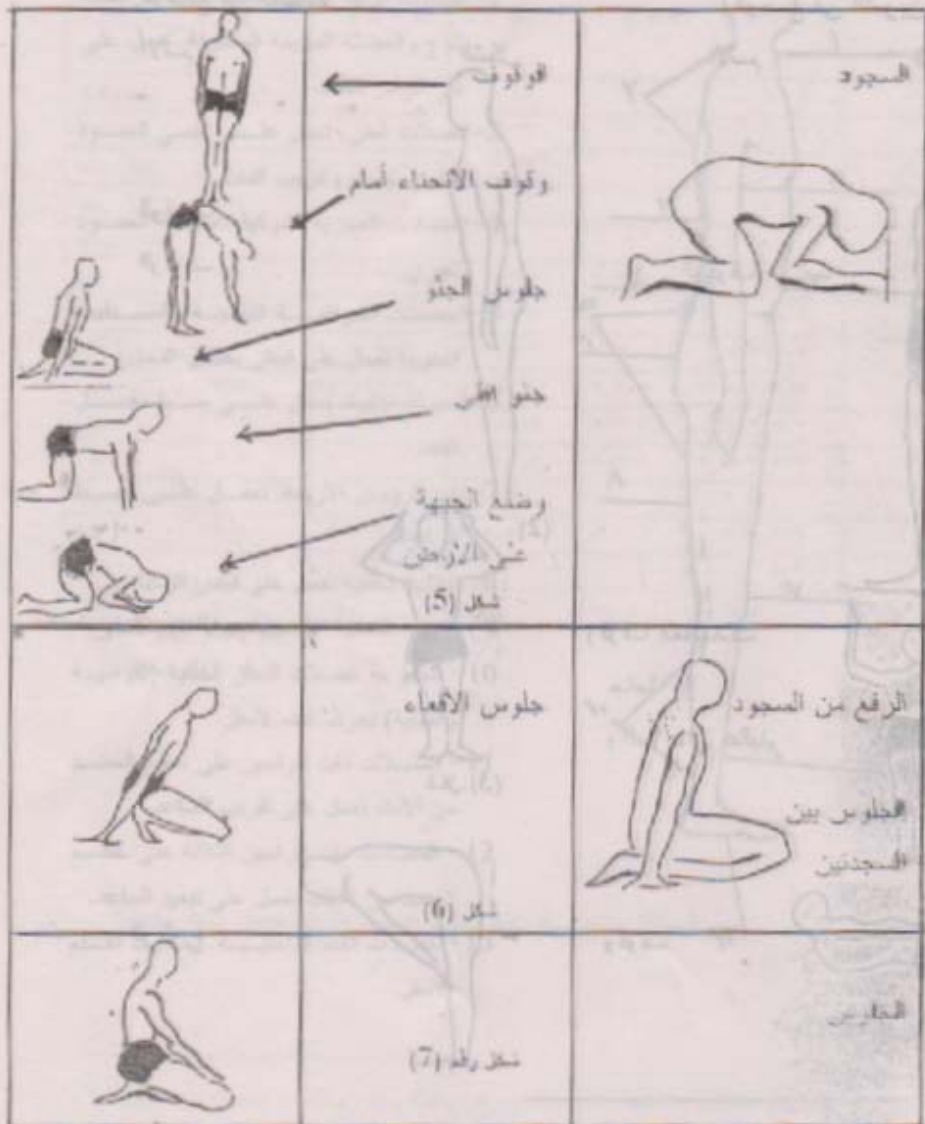 السجود
الوقوف
وقوف الانحناء أمام
جلوس الجثو
جثو افقي
وضع الجبهة
على الأرض
شكل (5)
الرفع من السجود
الجلوس بين
السجدتين
جلوس الاقعاء
شكل (6)
الجلوس
شكل رقم (7)